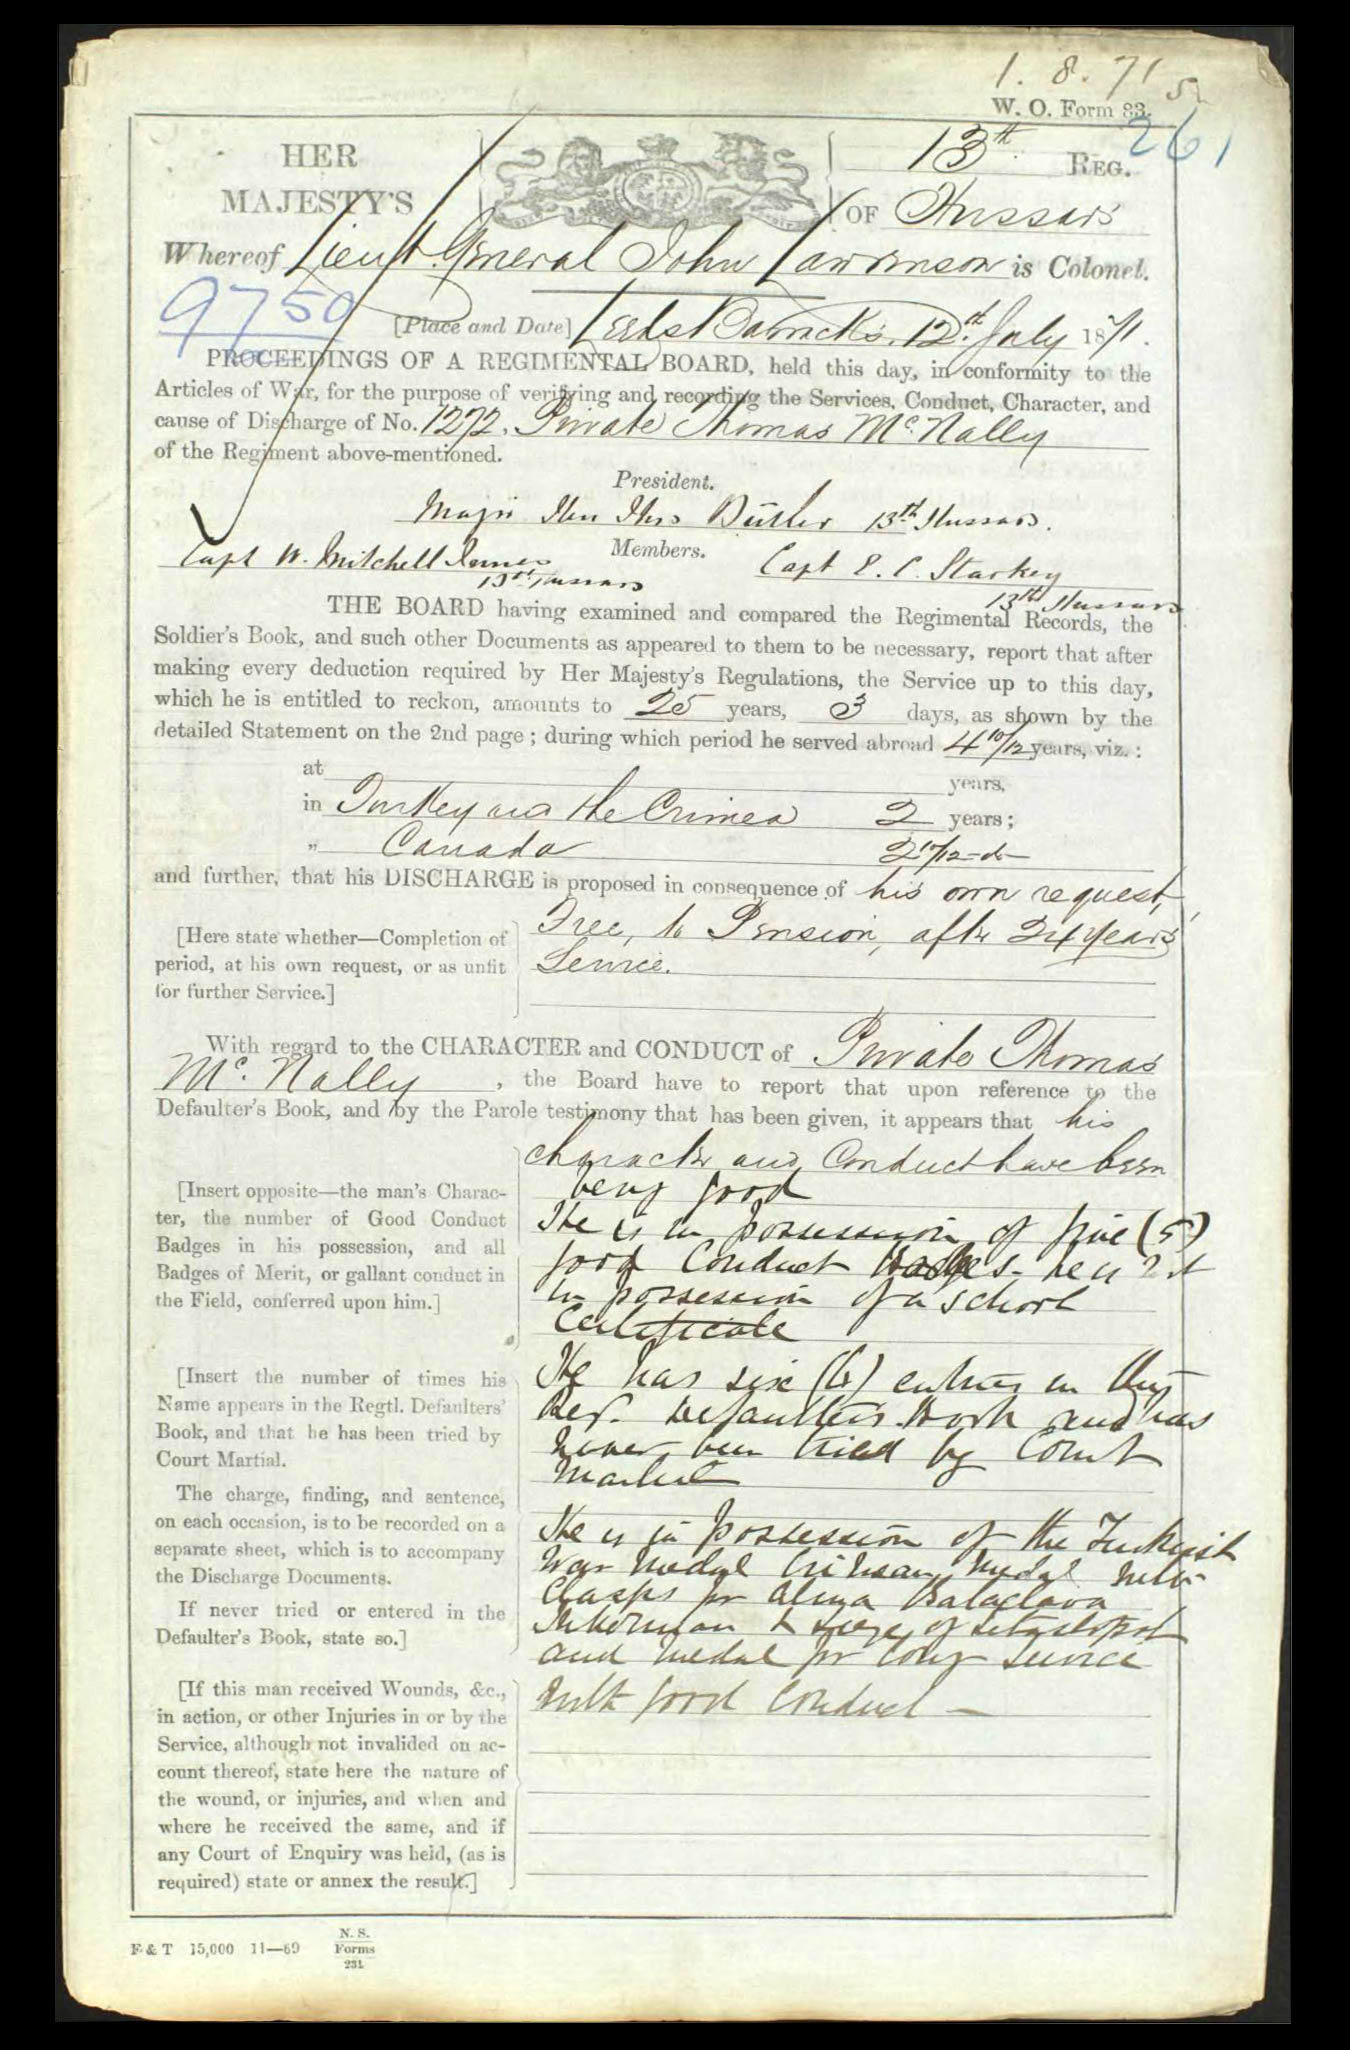 1. 8. 71
W. O. Form 83.
261
HER
MAJESTY'S
13th REG.
OF Hussars
Whereof Lieut. General John Lawrenson is Colonel.
9750
[Place and Date] Leeds Barracks, 12th July 1871.
PROCEEDINGS OF A REGIMENTAL BOARD, held this day, in conformity to the
Articles of War, for the purpose of verifying and recording the Services, Conduct, Character, and
cause of Discharge of No. 1272, Private Thomas McNally
of the Regiment above-mentioned.
President.
Major Hon Thos Butler 13th Hussars.
Members.
Capt W. Mitchell Innes
13th Hussars
Capt E. C. Starkey
13th Hussars
THE BOARD having examined and compared the Regimental Records, the
Soldier's Book, and such other Documents as appeared to them to be necessary, report that after
making every deduction required by Her Majesty's Regulations, the Service up to this day,
which he is entitled to reckon, amounts to 25 years, 3 days, as shown by the
detailed Statement on the 2nd page; during which period he served abroad 4 10/12 years, viz.:
at years,
in Turkey and the Crimea 2 years;
" Canada 2 10/12 do
and further, that his DISCHARGE is proposed in consequence of his own request,
Free, to Pension, after 24 years
Service.
[Here state whether—Completion of
period, at his own request, or as unfit
for further Service.]
With regard to the CHARACTER and CONDUCT of Private Thomas
McNally, the Board have to report that upon reference to the
Defaulter's Book, and by the Parole testimony that has been given, it appears that his
character and Conduct have been
very good
He is in possession of five (5)
good Conduct Badges. he is not
in possession of a school
Certificate
[Insert opposite—the man's Charac-
ter, the number of Good Conduct
Badges in his possession, and all
Badges of Merit, or gallant conduct in
the Field, conferred upon him.]
He has six (6) entries in the
Regt. Defaulters Book and has
never been tried by Court
Martial
[Insert the number of times his
Name appears in the Regtl. Defaulters'
Book, and that he has been tried by
Court Martial.
The charge, finding, and sentence,
on each occasion, is to be recorded on a
separate sheet, which is to accompany
the Discharge Documents.
If never tried or entered in the
Defaulter's Book, state so.]
He is in possession of the Turkish
War Medal Crimean Medal with
Clasps for Alma Balaclava
Inkerman & Siege of Sebastopol
and medal for long service
with good Conduct —
[If this man received Wounds, &c.,
in action, or other Injuries in or by the
Service, although not invalided on ac-
count thereof, state here the nature of
the wound, or injuries, and when and
where he received the same, and if
any Court of Enquiry was held, (as is
required) state or annex the result.]
F & T 15,000 11—69
N. S.
Forms
231